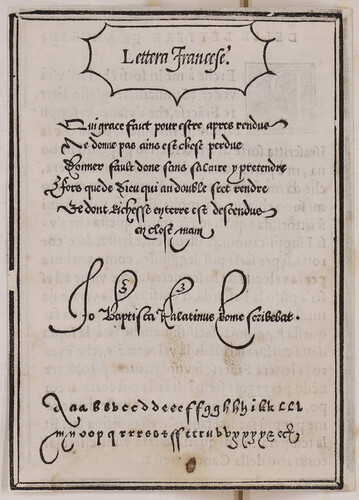 Lettera Francese.
Qui grace faict pour estre apres rendue
Ne donne pas ains est chose perdue
Donner fault donc sans salaire y pretendre
Fors que de Dieu qui au double sect rendre
Ce dont Richesse en terre est descendue
en close main
Jo Baptista Palatinus Rome scribebat.
A a a b b v c c d d e e e f f g g h h h i k k l l l
m n o o p q r r r s s t s s t t r u b v x x y z & &